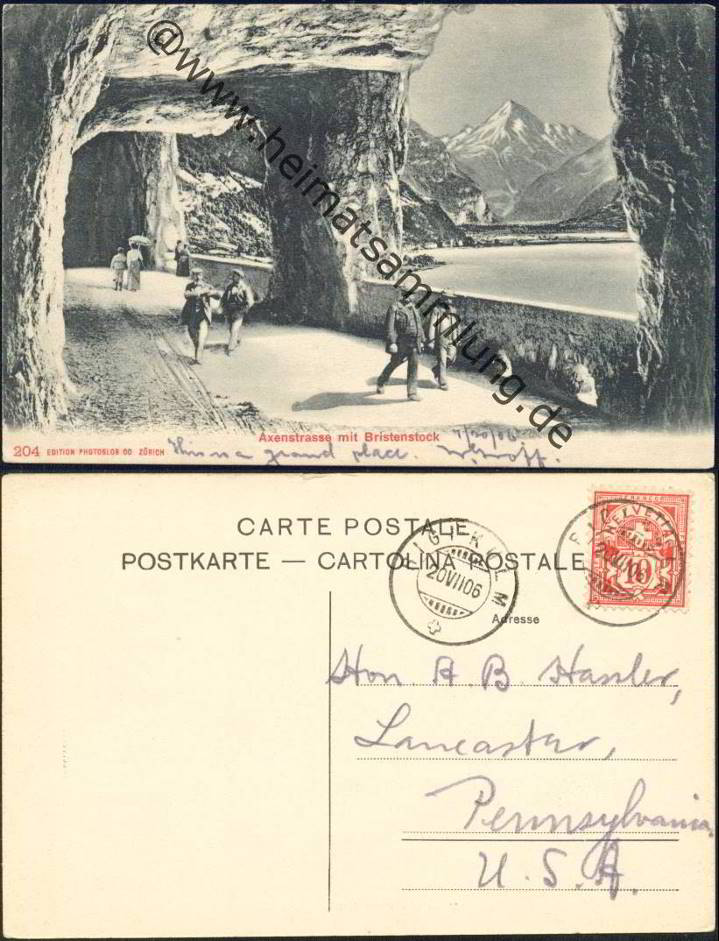 @www.heimatsammlung.de
Axenstrasse mit Bristenstock
204 EDITION PHOTOGLOB CO. ZÜRICH
a grand place. 7/20/06
CARTE POSTALE
POSTKARTE — CARTOLINA POSTALE
RIGI-KULM
20VII06
FRANCO
HELVETIA
10
Adresse
Hon. A. B. Hassler,
Lancaster,
Pennsylvania,
U. S. A.